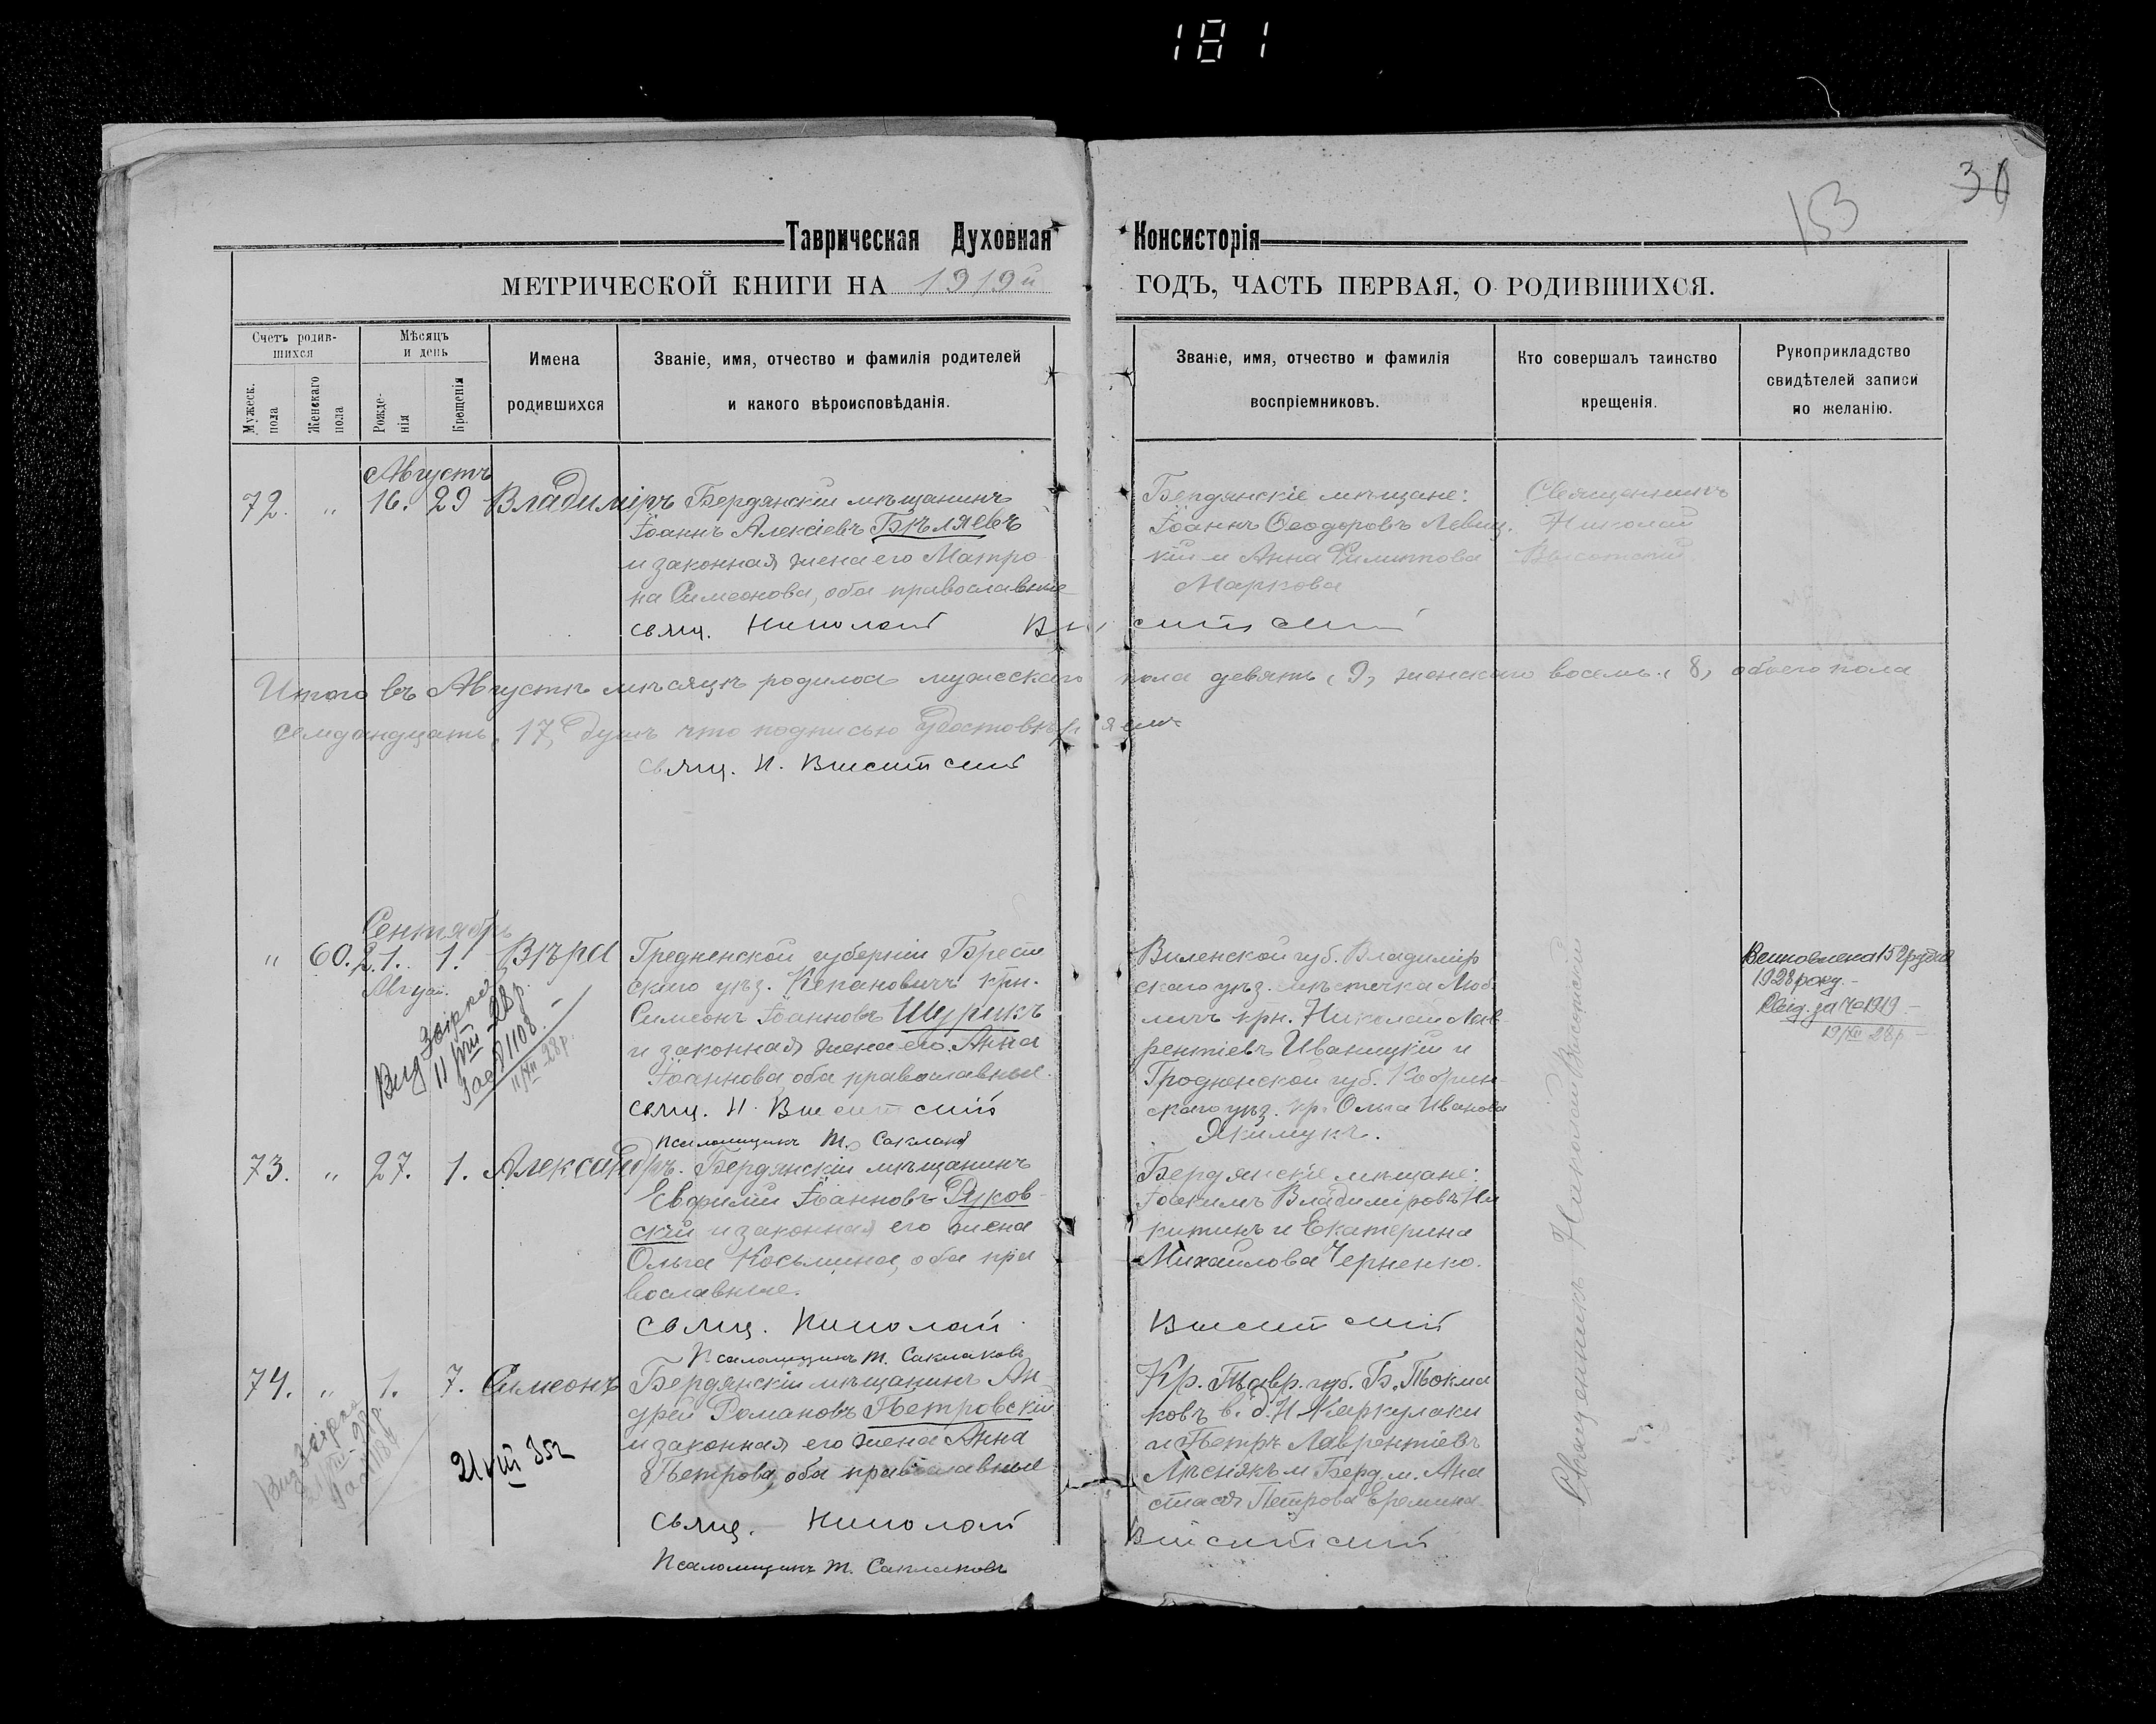 181
153
30
Таврическая Духовная Консисторія
МЕТРИЧЕСКОЙ КНИГИ НА 1919й ГОДЪ, ЧАСТЬ ПЕРВАЯ, О РОДИВШИХСЯ.
Счетъ родив-
шихся
Мужеск.
пола
Женскаго
пола
Мѣсяцъ
и день
Рожде-
нія
Крещенія
Имена
родившихся
Званіе, имя, отчество и фамилія родителей
и какого вѣроисповѣданія.
Званіе, имя, отчество и фамилія
воспріемниковъ.
Кто совершалъ таинство
крещенія.
Рукоприкладство
свидѣтелей записи
по желанію.
Августъ
72. " 16. 29 Владиміръ
Бердянскій мѣщанинъ
Іоаннъ Алексіевъ Бѣляевъ
и законная жена его Матро
на Симеонова, оба православные
Бердянскіе мѣщане:
Іоаннъ Ѳеодоровъ Левиц
кій и Анна Филиппова
Маркова
Священникъ
Николай
Высотскій
свящ. Николай Высотскій
Итого въ Августѣ мѣсяцѣ родилось мужескаго пола девять (9) женскаго восемь (8) обоего пола
семьнадцать (17) душъ что подписью удостовѣряемъ
свящ. Н. Высотскій
Сентябрь
" 60. 21. 1. Вѣра
Август.
Гродненской губерніи Брест
скаго уѣз. крн.
Симеонъ Іоанновъ Шурикъ
и законная жена его Анна
Іоаннова оба православные.
свящ. Н. Высотскій
Псаломщикъ Т. Саклаковъ
Виленской губ. Владимір
скаго уѣз. мѣстечка Люб
крн. Николай Лав
рентіевъ Иваницкій и
Гродненской губ. Кобрин
скаго уѣз. кр. Ольга Иванова
Якимукъ.
15 Грудня
1928 року.
Свід. за № 1919
19/XII 28р
Вид
11/VIII-28р.
1108
11/XII 28р.
73. " 27. 1. Александръ.
Бердянскій мѣщанинъ
Евфимій Іоанновъ Жуков
скій и законная его жена
Ольга Косьмина, оба пра
вославные.
свящ. Николай Высотскій
Псаломщикъ Т. Саклаковъ
Бердянскіе мѣщане:
Іоакимъ Владиміровъ Ни
китинъ и Екатерина
Михайлова Черненко.
74. " 1. 7. Симеонъ
Бердянскій мѣщанинъ Ан
дрей Романовъ Петровскій
и законная его жена Анна
Петрова, оба православные
свящ. Николай Высотскій
Псаломщикъ Т. Саклаковъ
Кр. Тавр. губ. Б. Токма
ковъ в. д. Н Каркулаки
и Петръ Лаврентіевъ
Лѣснякъ и Берд. м. Ана
стасія Петрова Еремина
21 VIII 35г
Священникъ Николай Высотскій